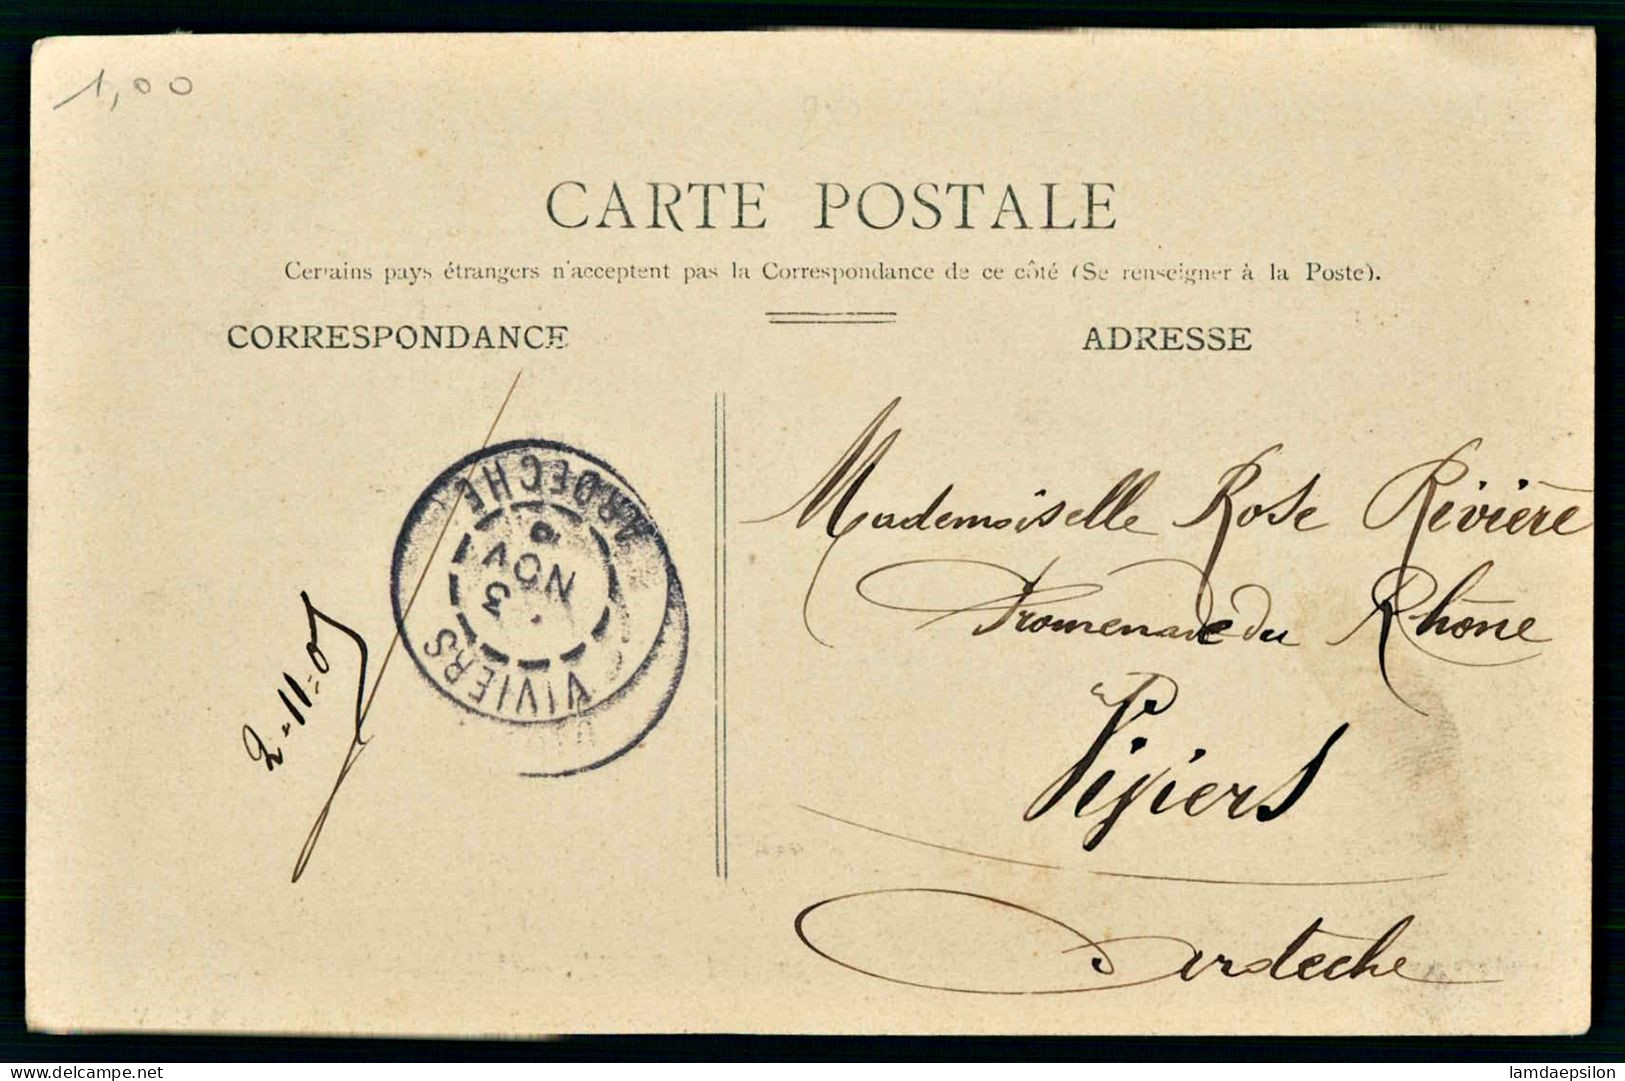 1,00
CARTE POSTALE
Certains pays étrangers n'acceptent pas la Correspondance de ce côté (Se renseigner à la Poste).
CORRESPONDANCE
ADRESSE
Mademoiselle Rose Rivière
Promenade du Rhône
Viviers
Ardèche
2-11-05
VIVIERS
ARDECHE
3
NOV
lamdaepsilon